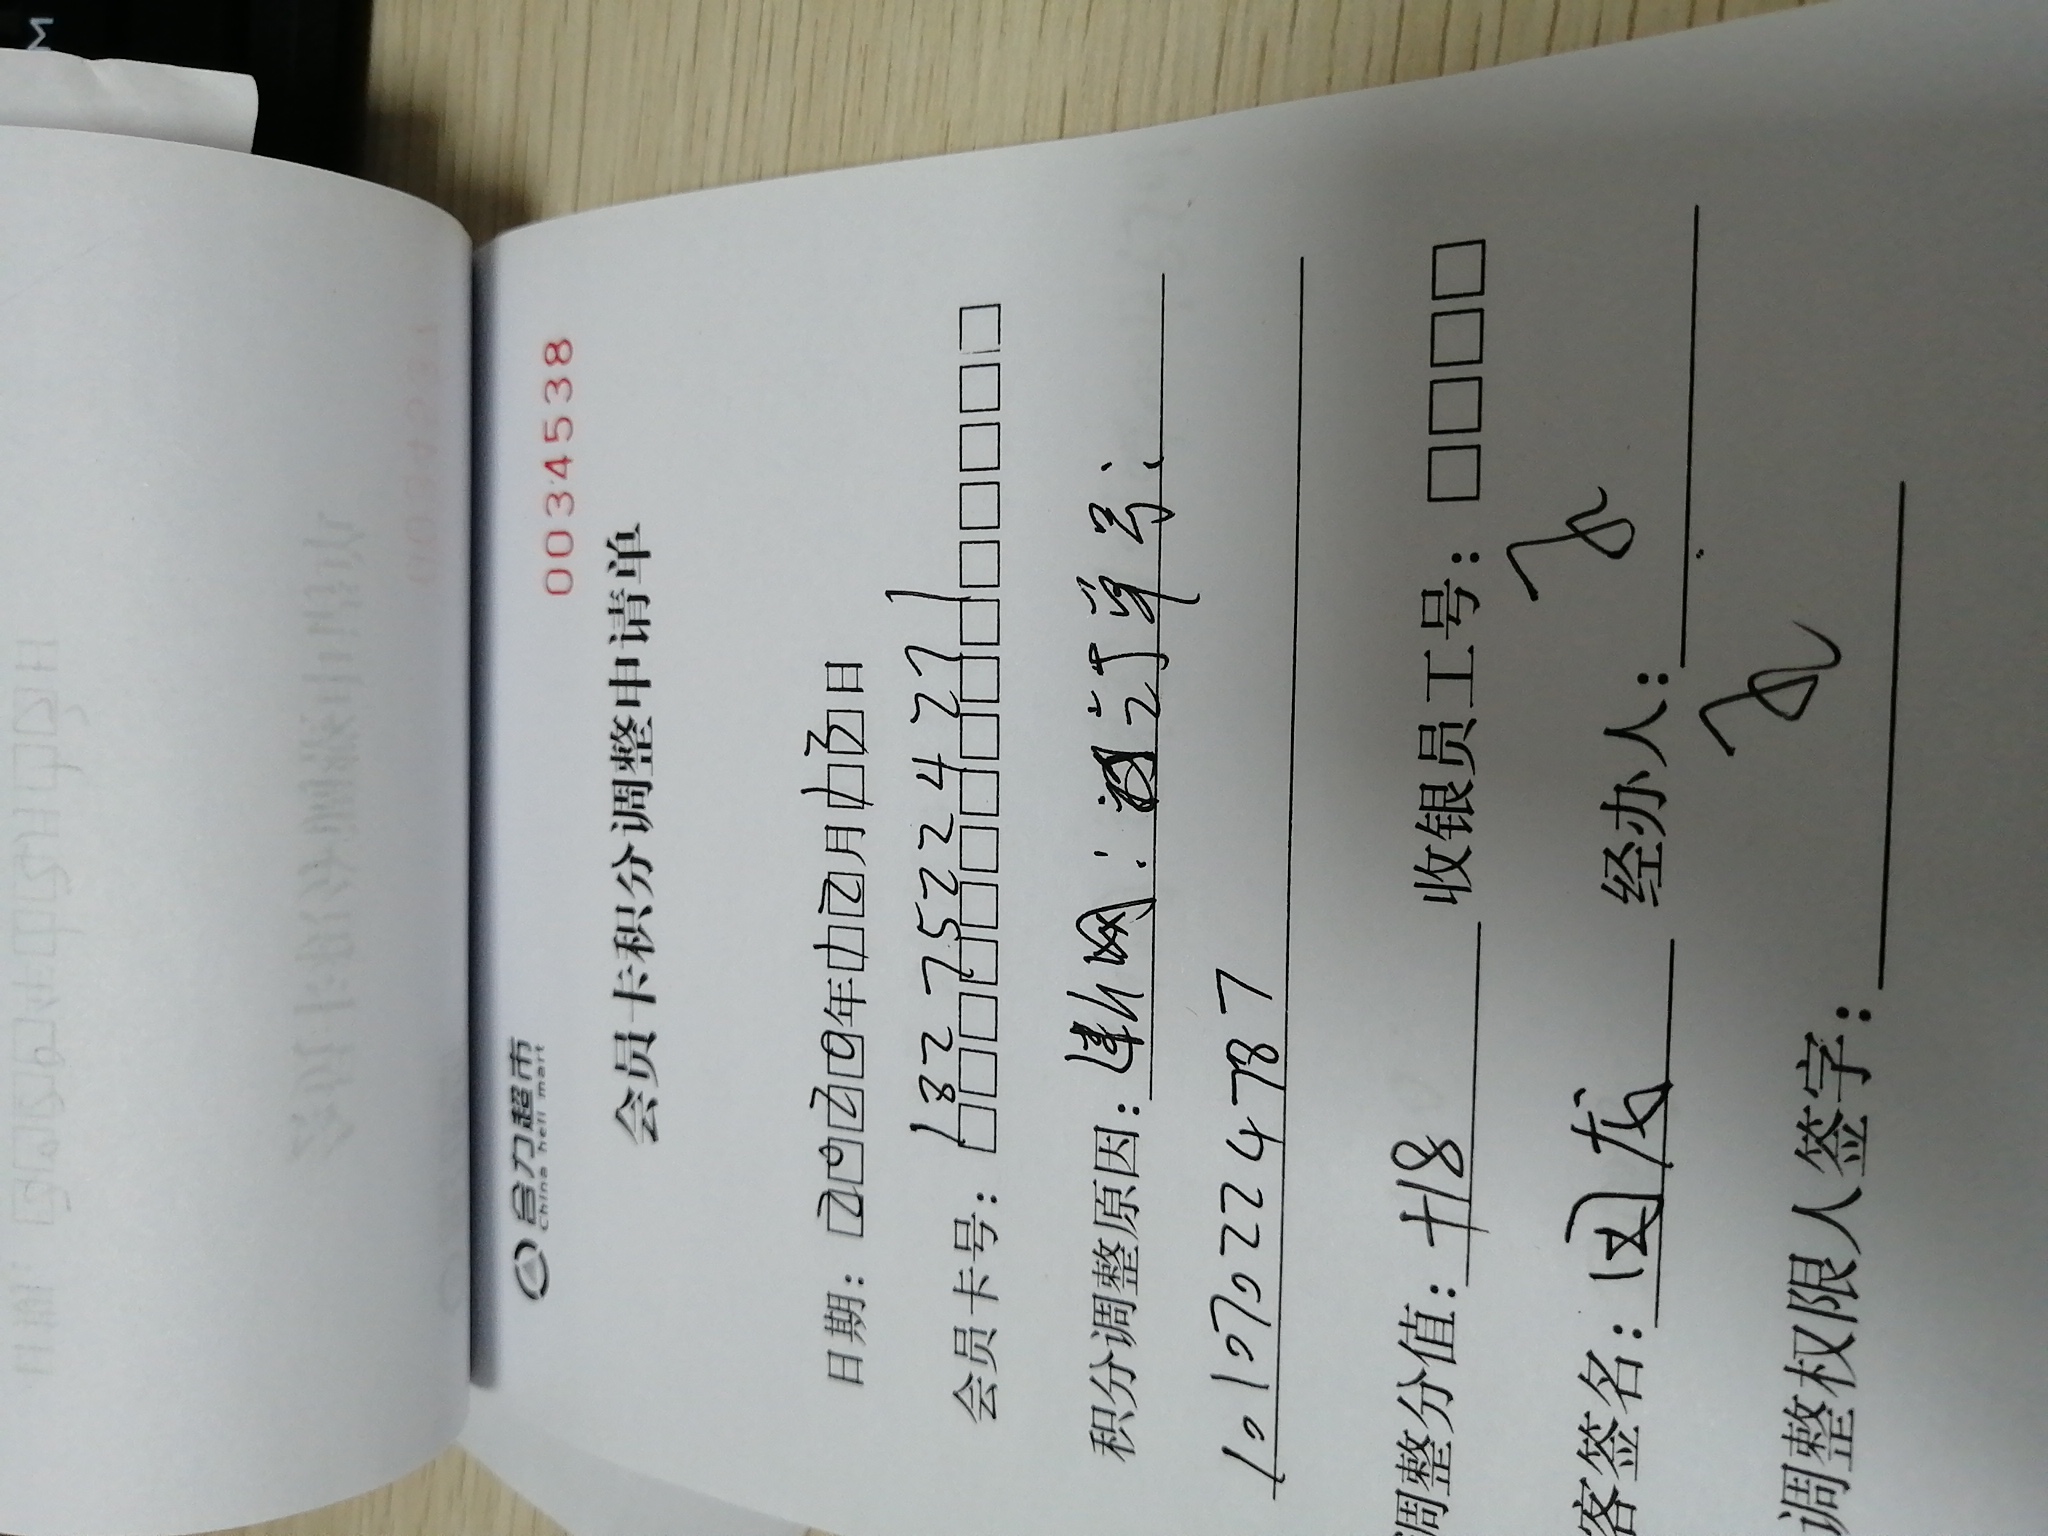 合力超市
China heli mart
0034538
会员卡积分调整申请单
日期：2020年12月13日
会员卡号：18275224271
积分调整原因：断网：订单号：
101070224787
调整分值：+18 收银员工号：
客签名： 经办人：
调整权限人签字：